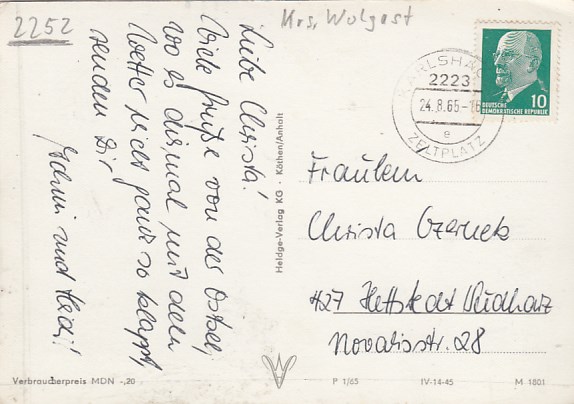 2252
Krs. Wolgast
Liebe Christa!
Viele Grüße von der Ostsee,
wo es diesmal mit dem
Wetter nicht ganz so klappt,
senden Dir
und Heidi!
Heldge-Verlag KG · Köthen/Anhalt
KARLSHAGEN
2223
24.8.65-16
e
ZELTPLATZ
10
DEUTSCHE
DEMOKRATISCHE REPUBLIK
Fräulein
Christa
427 Hettstedt Südharz
Novalisstr. 28
Verbraucherpreis MDN -,20
P 1/65
IV-14-45
M 1801